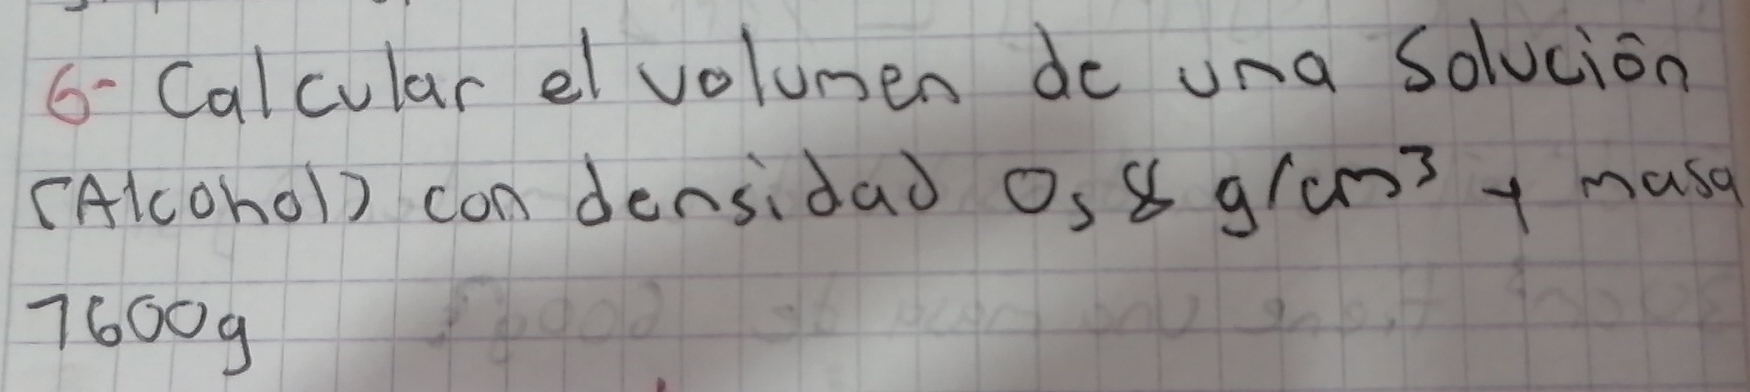 6- Calcular el volumen de una solución
(Alcohol) con densidad 0,8 g/cm³ y masa
7600g